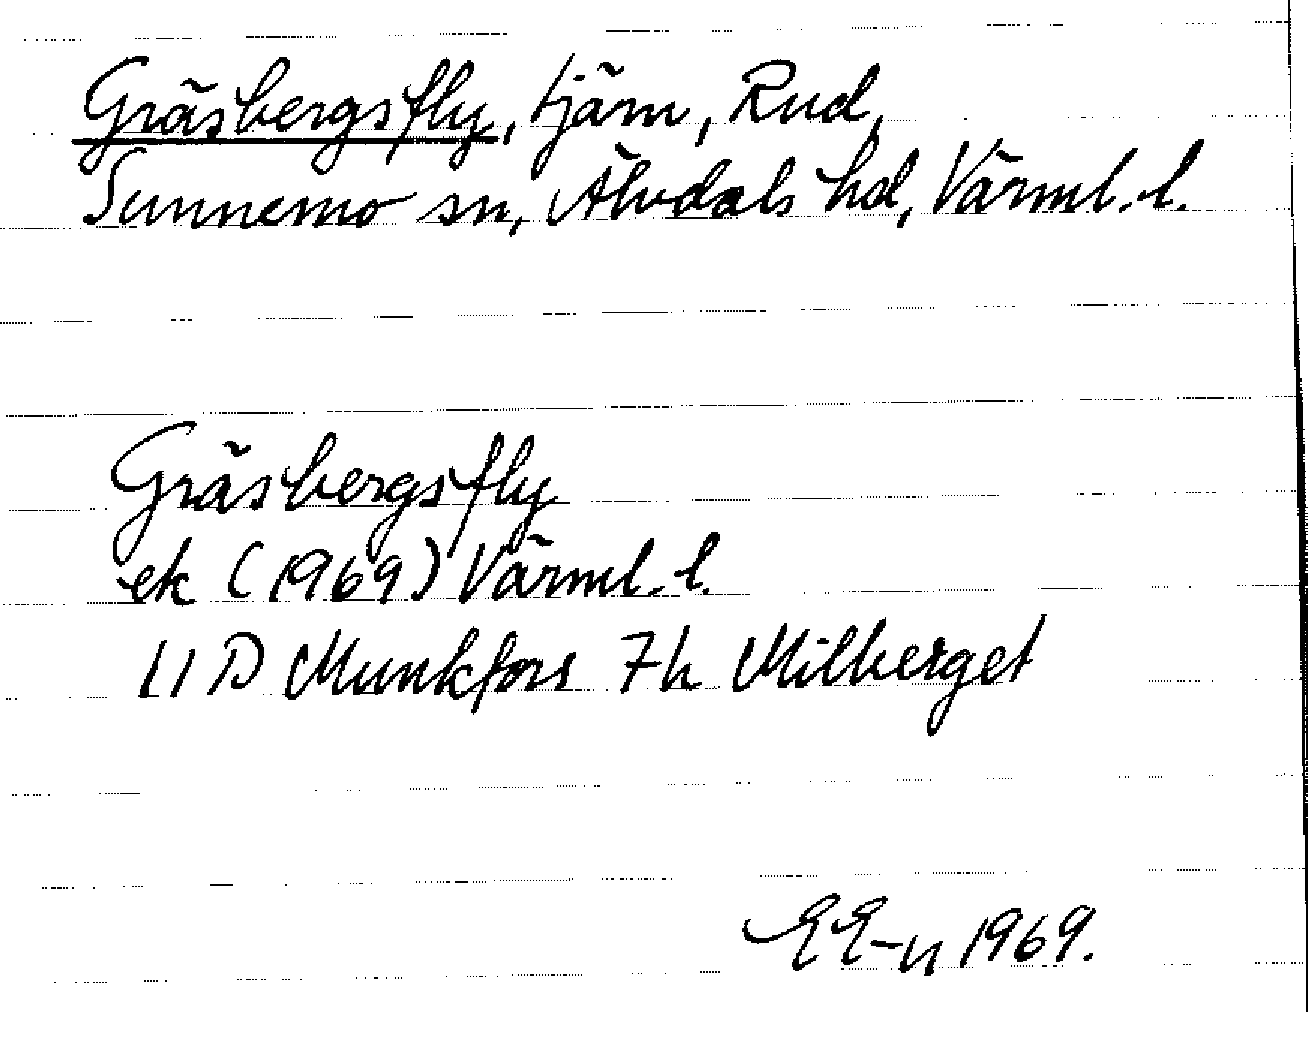 Gräsbergsfly, tjärn, Rud,
Sunnemo sn, Älvdals hd, Värml. l.
Gräsbergsfly
ek (1969) Värml. l.
11 D Munkfors 7h Milberget
EE-n 1969.